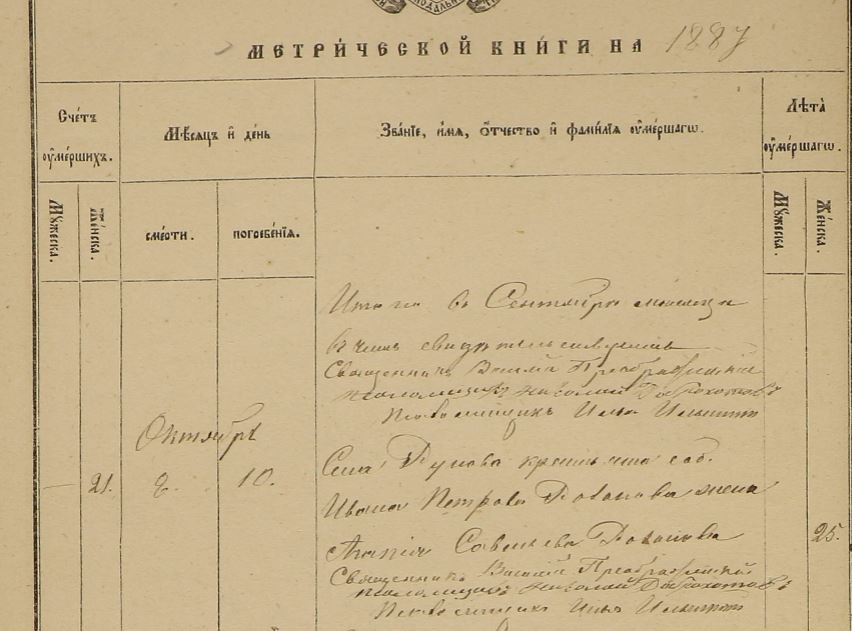 МЕТРИ́ЧЕСКОЙ КНИ́ГИ НА 1887
Счéтъ ѹ҆ме́ршихъ.
Мѣ́сяцъ и҆ де́нь
Зва́нїе, и҆́мѧ, ѻ҆́тчество и҆ фами́лїѧ ѹ҆ме́ршагѡ.
Лѣ́та ѹ҆ме́ршагѡ.
Мꙋ́жеска.
Же́нска.
сме́рти.
погребе́нїѧ.
Мꙋ́жеска.
Же́нска.
Итого въ Сентябрѣ мѣсяцѣ
в чемъ свидѣтельствуемъ
Священникъ Василій Преображенскій
псаломщикъ Николай Доброхотовъ
Псаломщикъ Илья
Октябрь
21. 8. 10.
Села крестьянина соб.
Ивана Петрова жена
Савельева
25.
Священникъ Василій Преображенскій
псаломщикъ Николай Доброхотовъ
Псаломщикъ Илья